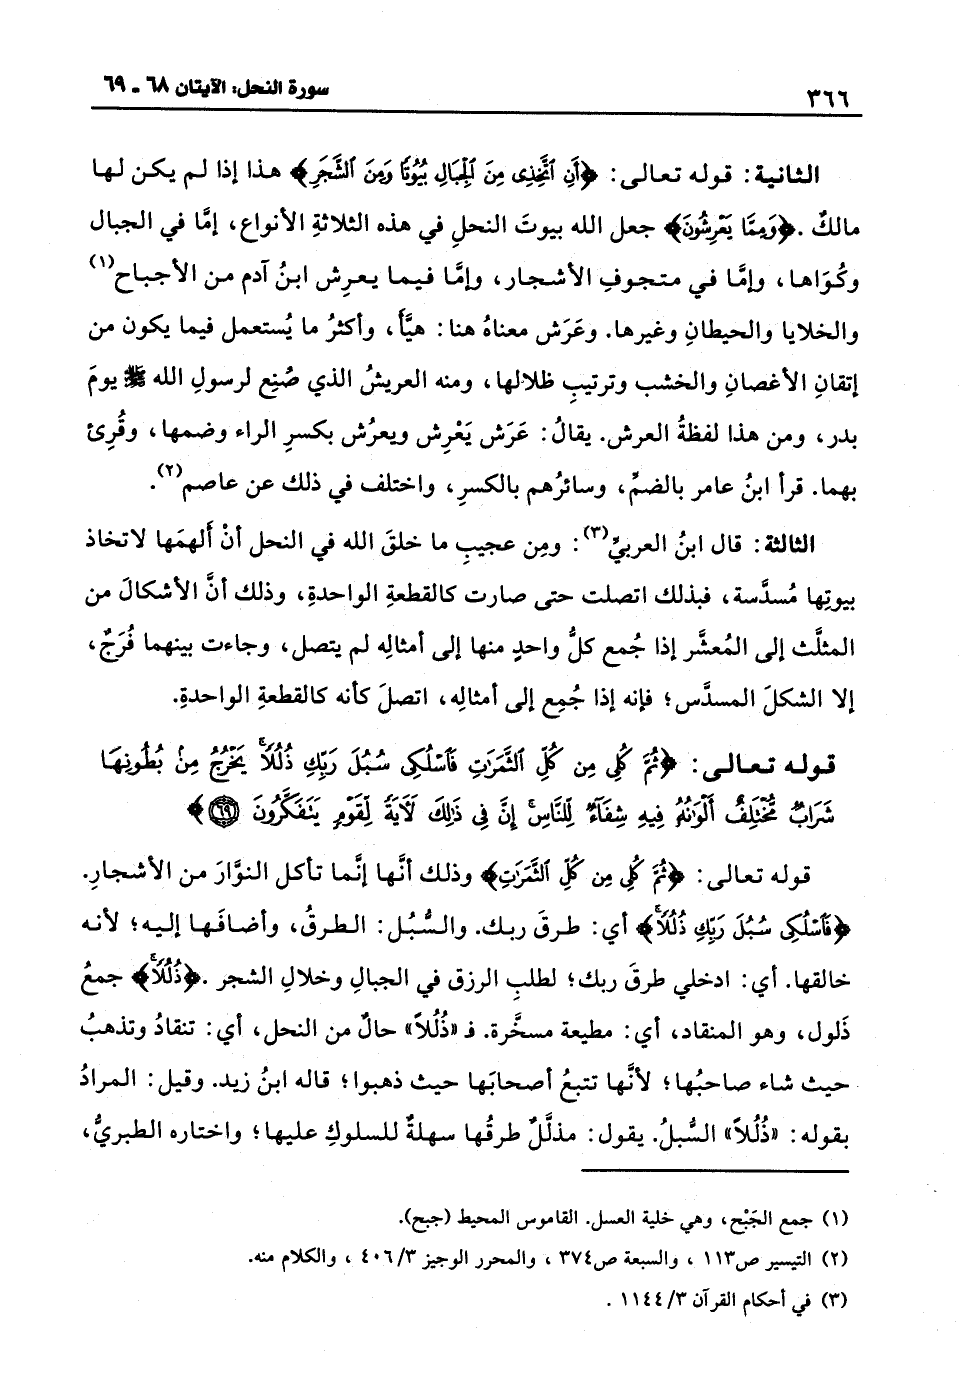 ٣٦٦ سورة النحل: الآيتان ٦٨ - ٦٩
الثانية: قوله تعالى: ﴿أَنِ ٱتَّخِذِى مِنَ ٱلْجِبَالِ بُيُوتًا وَمِنَ ٱلشَّجَرِ﴾ هذا إذا لم يكن لها
مالكٌ. ﴿وَمِمَّا يَعْرِشُونَ﴾ جعل الله بيوتَ النحلِ في هذه الثلاثةِ الأنواع، إمَّا في الجبال
وكُوَاها، وإمَّا في متجوفِ الأشجار، وإمَّا فيما يعرِش ابنُ آدم من الأجباح(١)
والخلايا والحيطانِ وغيرها. وعَرَش معناهُ هنا: هيَّأَ، وأكثرُ ما يُستعمل فيما يكون من
إتقانِ الأغصانِ والخشب وترتيبِ ظلالها، ومنه العريشُ الذي صُنِع لرسولِ الله ﷺ يومَ
بدر، ومن هذا لفظةُ العرش. يقالُ: عَرَش يَعْرِش ويعرُش بكسرِ الراء وضمها، وقُرِئ
بهما. قرأ ابنُ عامر بالضمِّ، وسائرُهم بالكسرِ، واختلف في ذلك عن عاصم(٢).
الثالثة: قال ابنُ العربيِّ(٣): ومِن عجيبِ ما خلقَ الله في النحل أنْ أَلهمَها لاتخاذ
بيوتِها مُسدَّسة، فبذلك اتصلت حتى صارت كالقطعةِ الواحدةِ، وذلك أنَّ الأشكالَ من
المثلَّث إلى المُعشَّر إذا جُمع كلُّ واحدٍ منها إلى أمثالِه لم يتصل، وجاءت بينهما فُرَجٌ،
إلا الشكلَ المسدَّس؛ فإنه إذا جُمِع إلى أمثالِه، اتصلَ كأنه كالقطعةِ الواحدةِ.
قوله تعالى: ﴿ثُمَّ كُلِى مِن كُلِّ ٱلثَّمَرَٰتِ فَٱسْلُكِى سُبُلَ رَبِّكِ ذُلُلًا ۚ يَخْرُجُ مِنۢ بُطُونِهَا
شَرَابٌ مُّخْتَلِفٌ أَلْوَٰنُهُۥ فِيهِ شِفَآءٌ لِّلنَّاسِ ۗ إِنَّ فِى ذَٰلِكَ لَآيَةً لِّقَوْمٍ يَتَفَكَّرُونَ ﴿٦٩﴾﴾
قوله تعالى: ﴿ثُمَّ كُلِى مِن كُلِّ ٱلثَّمَرَٰتِ﴾ وذلك أنَّها إنَّما تأكل النوَّارَ من الأشجارِ.
﴿فَٱسْلُكِى سُبُلَ رَبِّكِ ذُلُلًا ۚ﴾ أي: طرقَ ربك. والسُّبُل: الطرقُ، وأضافَها إليه؛ لأنه
خالقها. أي: ادخلي طرقَ ربك؛ لطلبِ الرزق في الجبال وخلالِ الشجر. ﴿ذُلُلًا ۚ﴾ جمعُ
ذَلول، وهو المنقاد، أي: مطيعة مسخَّرة. فـ «ذُلُلاً» حالٌ من النحل، أي: تنقادُ وتذهبُ
حيث شاء صاحبُها؛ لأنَّها تتبعُ أصحابَها حيث ذهبوا؛ قاله ابنُ زيد. وقيل: المرادُ
بقوله: «ذُلُلاً» السُّبلُ. يقول: مذلَّلٌ طرقُها سهلةٌ للسلوكِ عليها؛ واختاره الطبريُّ،
(١) جمع الجَبْح، وهي خلية العسل. القاموس المحيط (جبح).
(٢) التيسير ص١١٣ ، والسبعة ص٣٧٤ ، والمحرر الوجيز ٤٠٦/٣ ، والكلام منه.
(٣) في أحكام القرآن ١١٤٤/٣ .